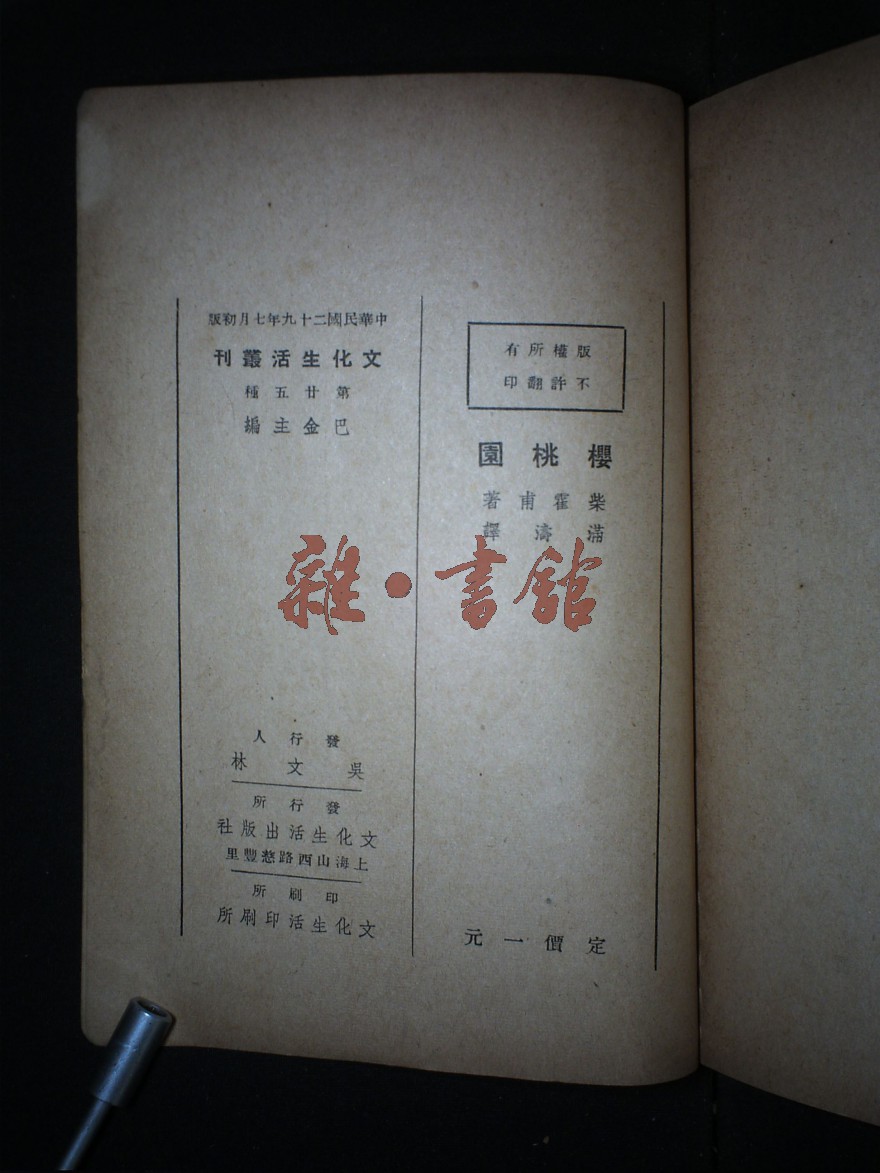 版權所有
不許翻印
櫻桃園
柴霍甫著
滿濤譯
定價一元
中華民國二十九年七月初版
文化生活叢刊
第廿五種
巴金主編
發行人
吳文林
發行所
文化生活出版社
上海山西路慈豐里
印刷所
文化生活印刷所
雜·書館